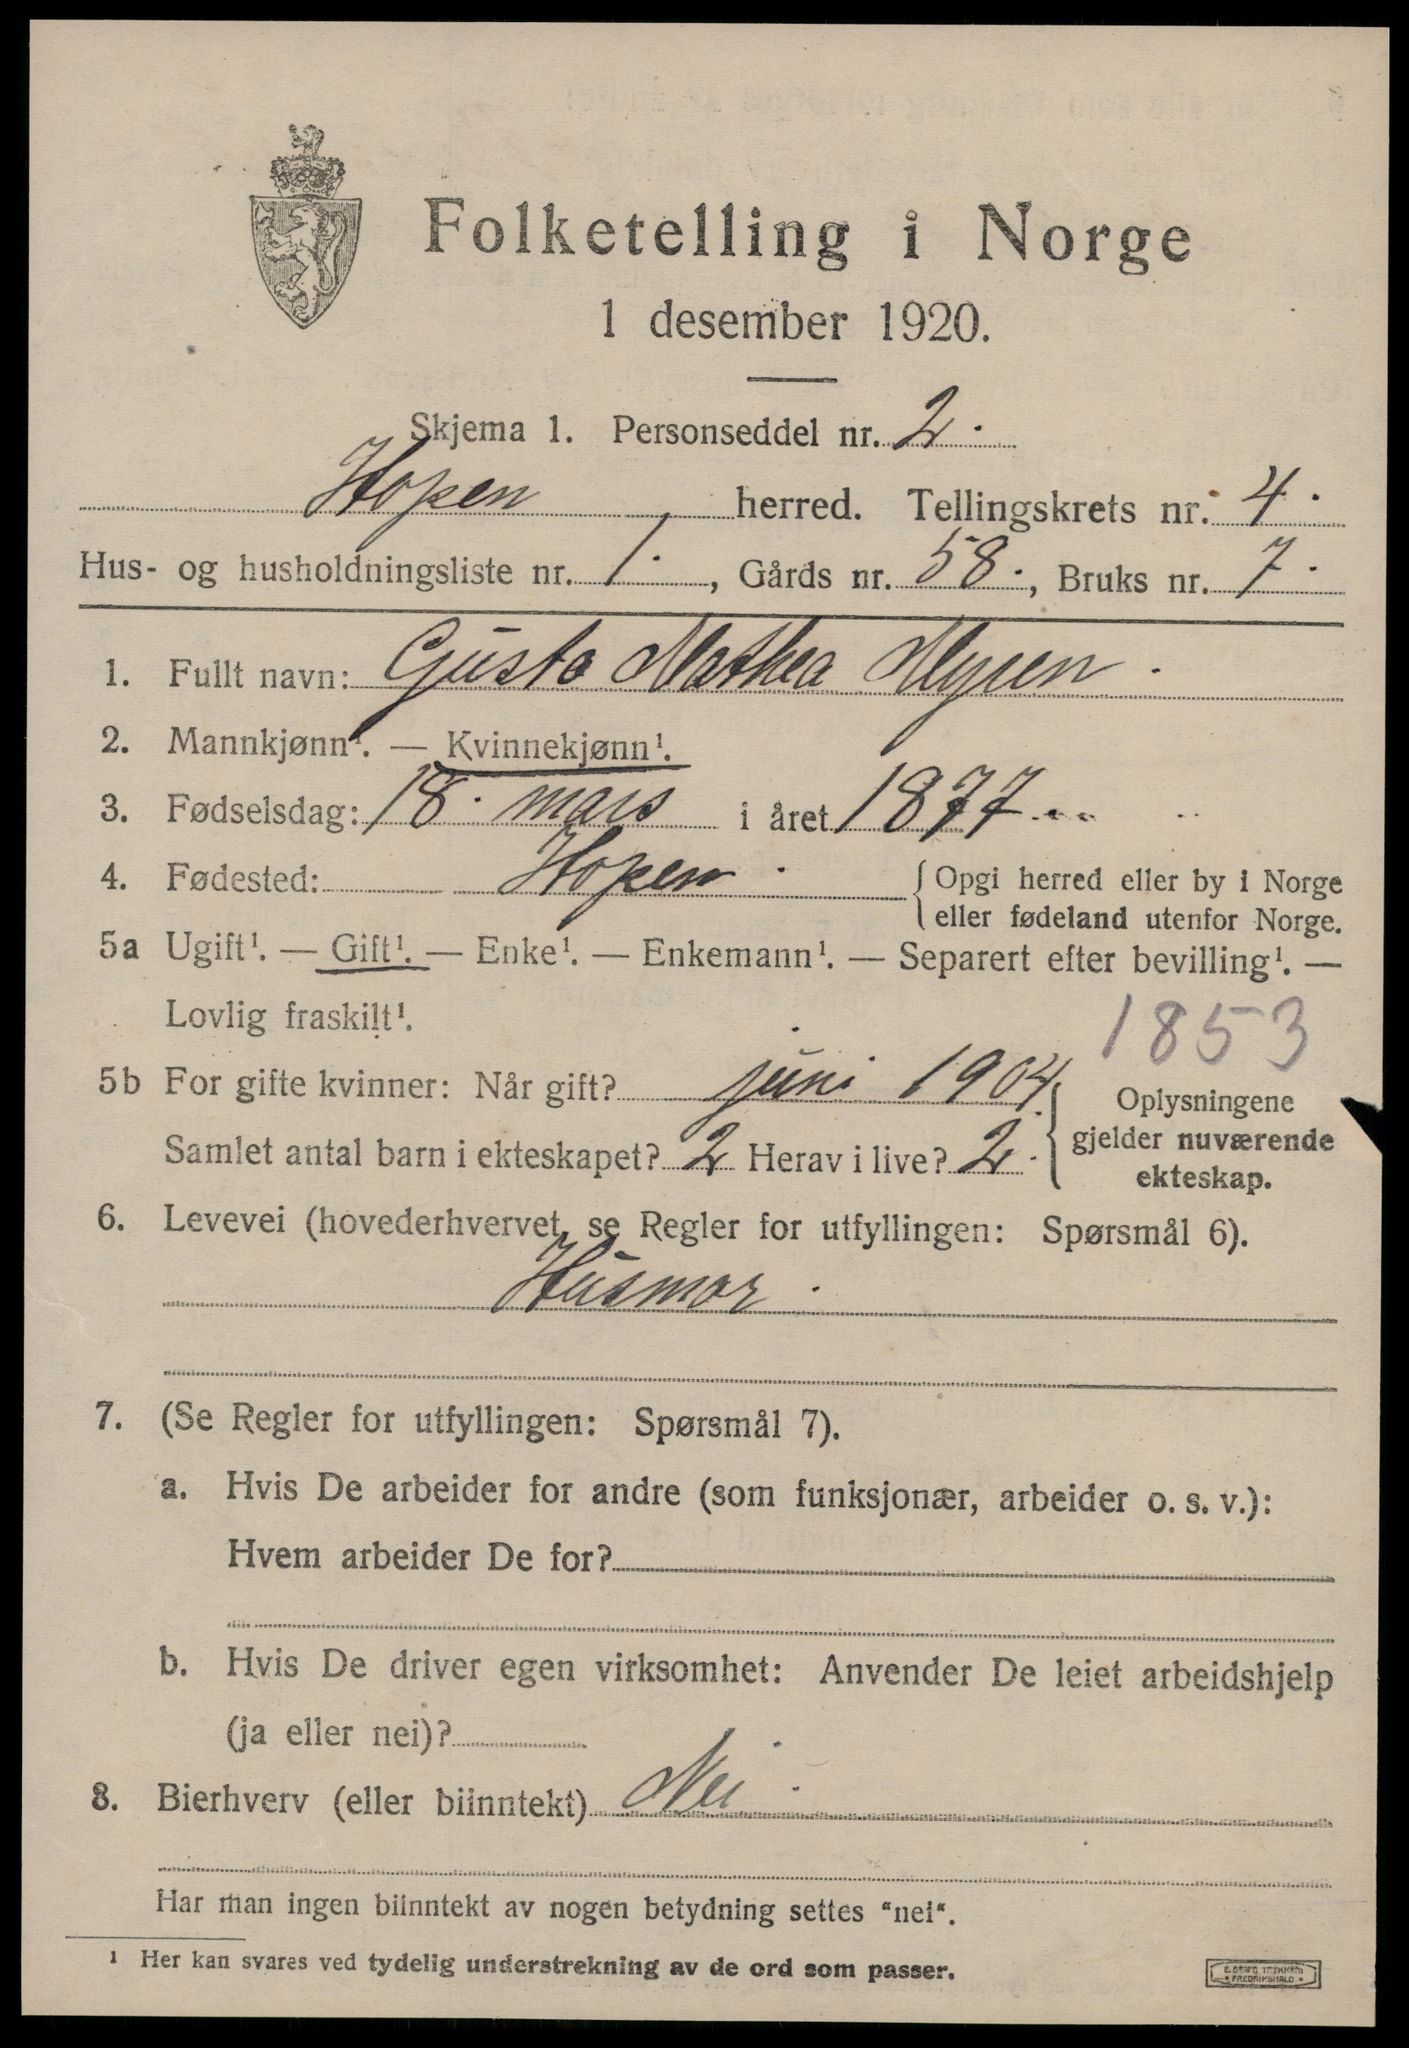 Folketelling i Norge
1 desember 1920.
Skjema 1. Personseddel nr. 2.
Hopen herred. Tellingskrets nr. 4.
Hus- og husholdningsliste nr. 1., Gårds nr. 58., Bruks nr. 7.
1. Fullt navn: Gusta Mathea Myren.
2. Mannkjønn¹. — Kvinnekjønn¹.
3. Fødselsdag: 18. mars i året 1877
4. Fødested: Hopen. { Opgi herred eller by i Norge
eller fødeland utenfor Norge.
5a Ugift¹. — Gift¹. — Enke¹. — Enkemann¹. — Separert efter bevilling¹. —
Lovlig fraskilt¹.
1853
5b For gifte kvinner: Når gift? juni 1904.
Samlet antal barn i ekteskapet? 2 Herav i live? 2.
{ Oplysningene
gjelder nuværende
ekteskap.
6. Levevei (hovederhvervet, se Regler for utfyllingen: Spørsmål 6).
Husmor.
7. (Se Regler for utfyllingen: Spørsmål 7).
a. Hvis De arbeider for andre (som funksjonær, arbeider o. s. v.):
Hvem arbeider De for?
b. Hvis De driver egen virksomhet: Anvender De leiet arbeidshjelp
(ja eller nei)?
8. Bierhverv (eller biinntekt) Nei.
Har man ingen biinntekt av nogen betydning settes "nei".
¹ Her kan svares ved tydelig understrekning av de ord som passer.
FREDRIKSHALD